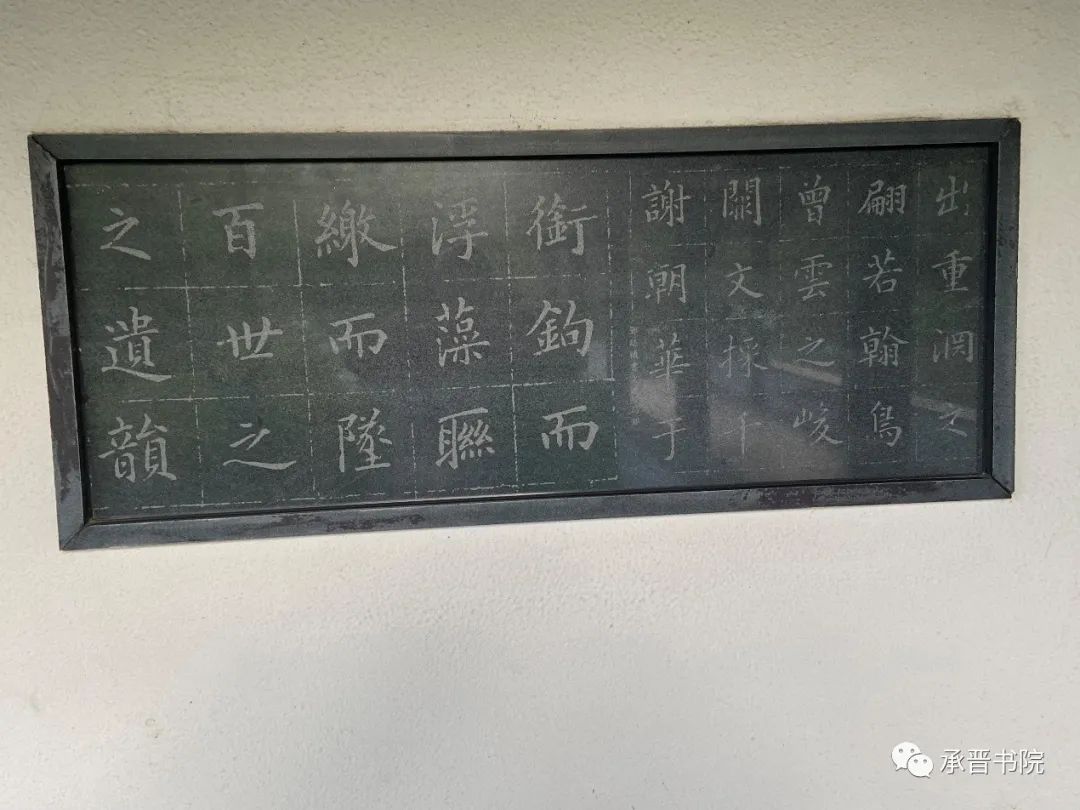 出重淵之
翩若翰鳥
曾雲之峻
闕文採千
謝朝華于
銜鉤而
浮藻聯
繳而墜
百世之
之遺韻
承晋书院